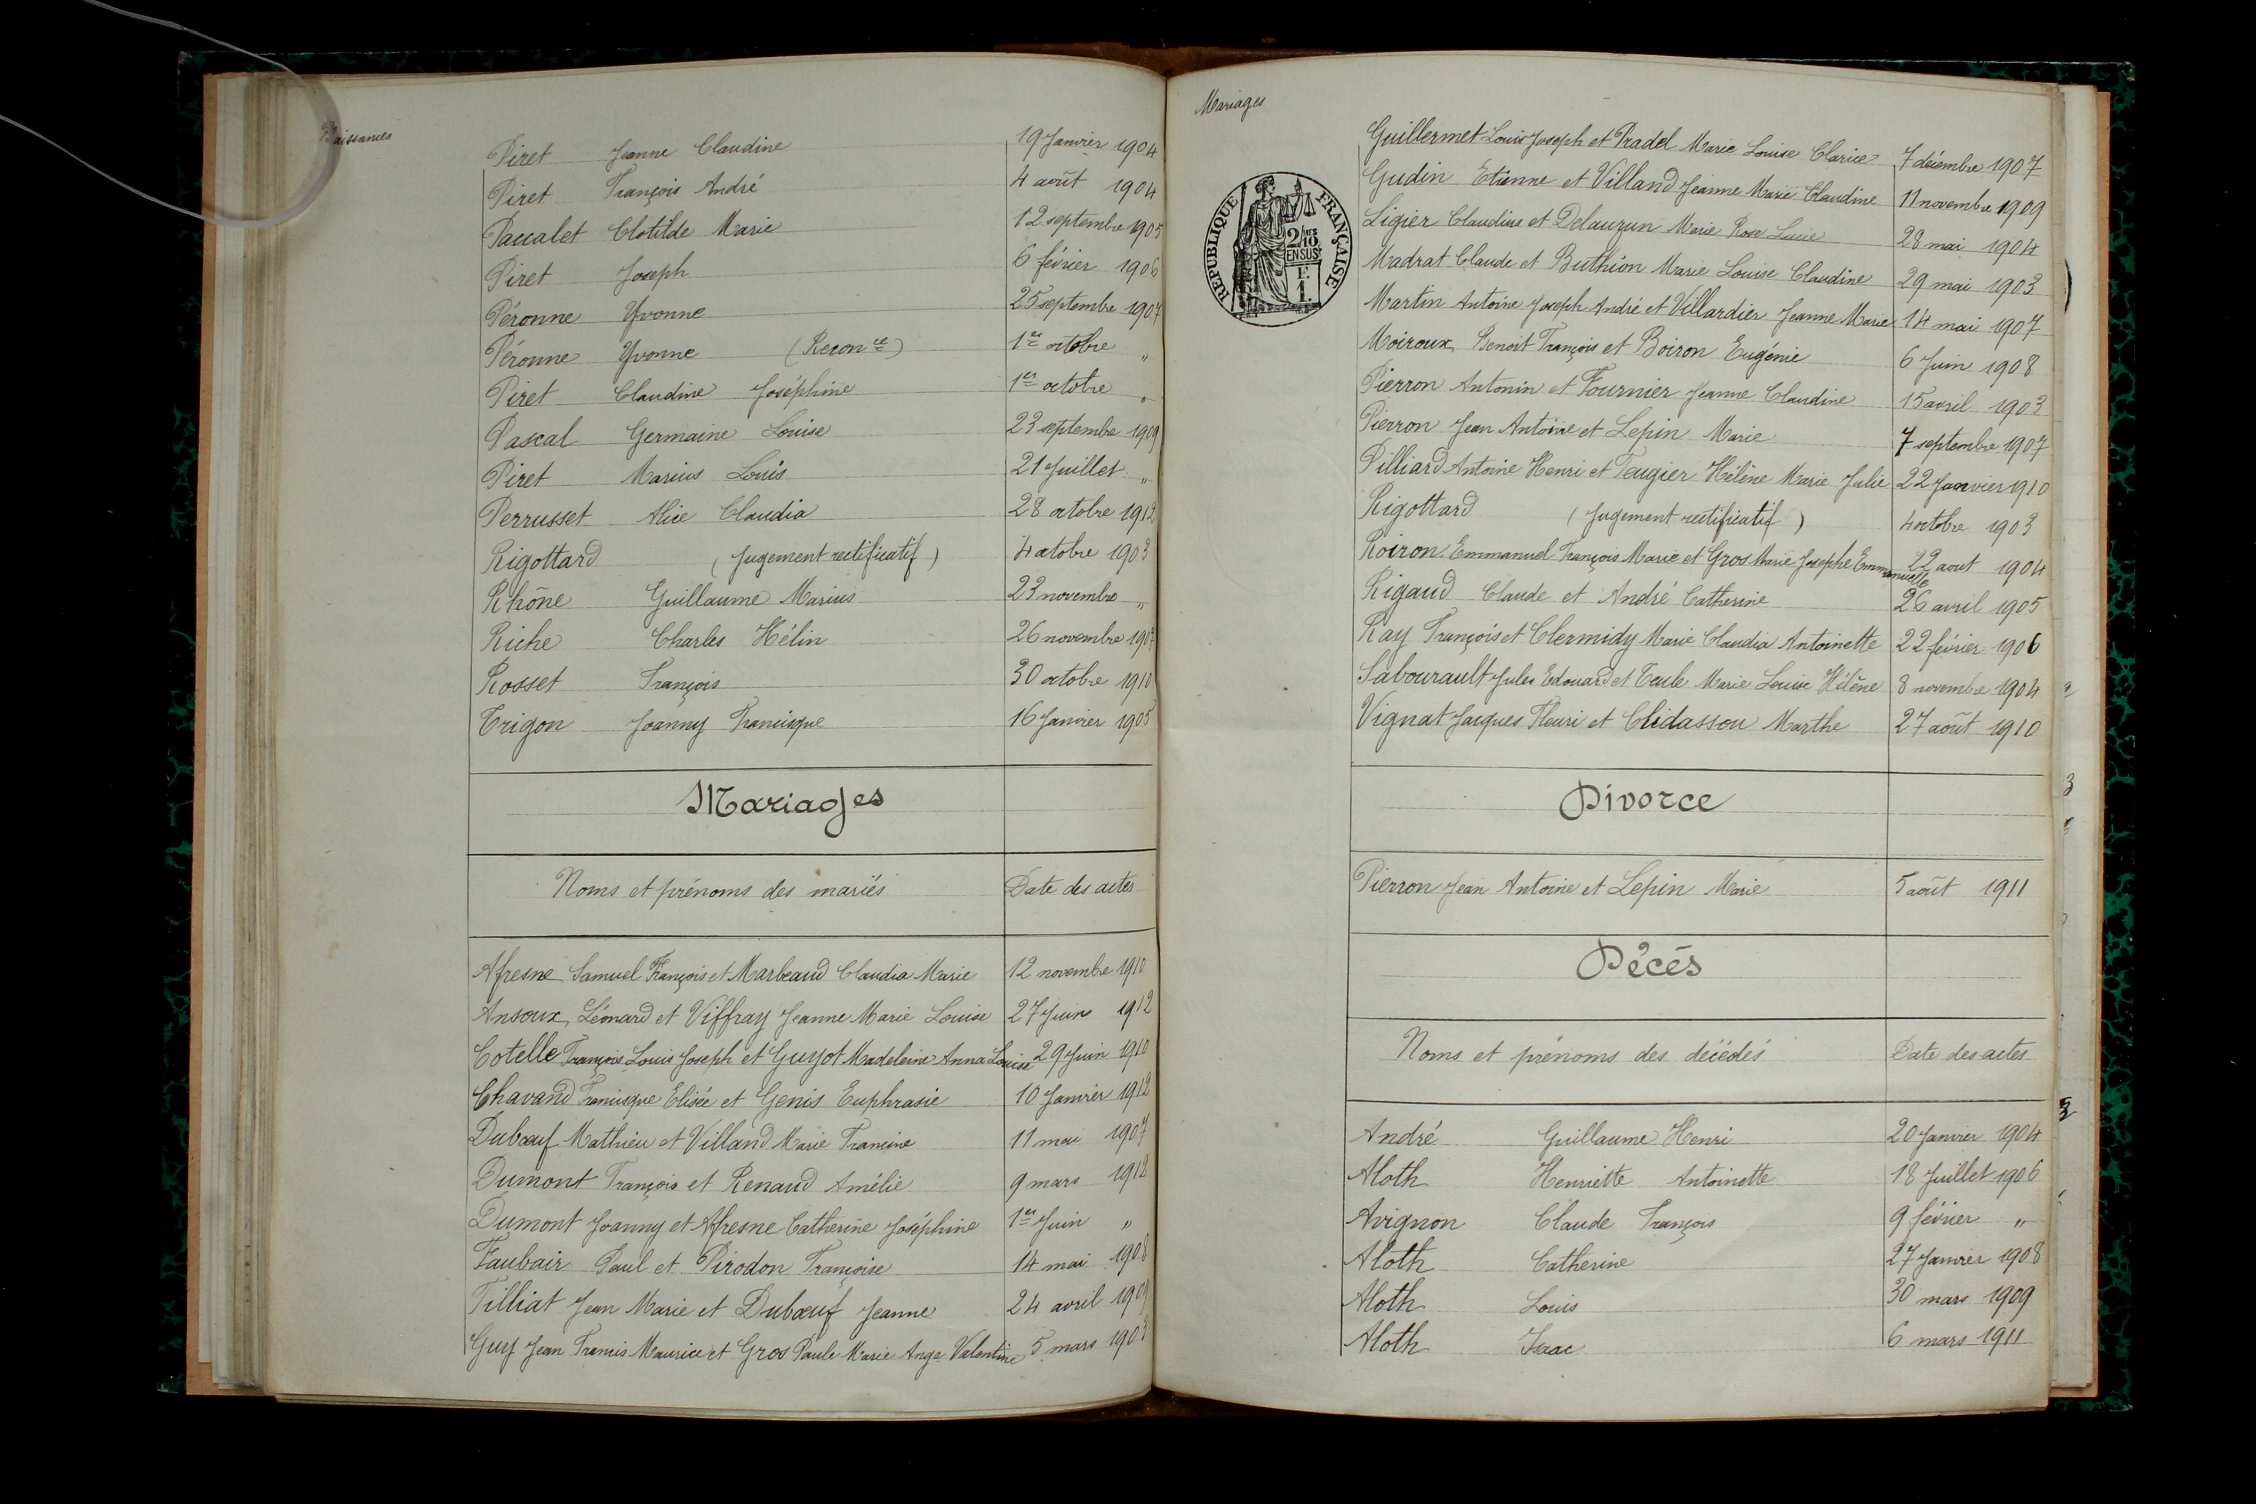 Naissances
Piret Jeanne Claudine 19 Janvier 1904
Piret François André 4 août 1904
Paccalet Clotilde Marie 12 septembre 1905
Piret Joseph 6 février 1906
Péronne Yvonne 25 septembre 1907
Péronne Yvonne (Reconce) 1er octobre "
Piret Claudine Joséphine 1er octobre "
Pascal Germaine Louise 23 septembre 1909
Piret Marius Louis 21 Juillet "
Perrusset Alice Claudia 28 octobre 1912
Rigottard (Jugement rectificatif) 4 octobre 1903
Rhône Guillaume Marius 23 novembre "
Riche Charles Hélin 26 novembre
Rosset François 30 octobre 1910
Trigon Joanny Francisque 16 Janvier 1905
Mariages
Noms et prénoms des mariés Date des actes
Afresne Samuel François et Marbeaud Claudia Marie 12 novembre 1910
Ansoux Léonard et Viffray Jeanne Marie Louise 27 Juin 1912
Cotelle François Louis Joseph et Guyot Madeleine Anna Louise 29 Juin 1910
Chavand Francisque Elisée et Genis Euphrasie 10 Janvier 1912
Dubœuf Mathieu et Villand Marie Francine 11 mai 1907
Dumont François et Renaud Amélie 9 mars 1912
Dumont Joanny et Afresne Catherine Joséphine 1er Juin "
Faubair Paul et Pirodon Françoise 14 mai 1908
Filliat Jean Marie et Dubœuf Jeanne 24 avril 1909
Guy Jean Francis Maurice et Gros Paule Marie Ange Valentine 5 mars 1903
Mariages
REPUBLIQUE FRANÇAISE
2/10 mes
EN SUS
1 F.
Guillermet Louis Joseph et Pradel Marie Louise Clarice 7 décembre 1907
Gudin Etienne et Villand Jeanne Marie Claudine 11 novembre 1909
Ligier Claudius et Delauzun Marie Rose Lucie 28 mai 1904
Madrat Claude et Buthion Marie Louise Claudine 29 mai 1903
Martin Antoine Joseph André et Villardier Jeanne Marie 14 mai 1907
Moiroux Benoit François et Boiron Eugénie 6 Juin 1908
Pierron Antonin et Fournier Jeanne Claudine 15 avril 1903
Pierron Jean Antoine et Lepin Marie 7 septembre 1907
Pilliard Antoine Henri et Teugier Hélène Marie Julie 22 Janvier 1910
Rigottard (Jugement rectificatif) 4 octobre 1903
Roiron Emmanuel François Marie et Gros Marie Josephe Emmanuelle 22 aout 1904
Rigaud Claude et André Catherine 26 avril 1905
Ray François et Clermidy Marie Claudia Antoinette 22 février 1906
Sabourault Jules Edouard et Teule Marie Louise Hélène 8 novembre 1904
Vignat Jacques Fleuri et Clidassou Marthe 27 août 1910
Divorce
Pierron Jean Antoine et Lepin Marie 5 août 1911
Décés
Noms et prénoms des décédés Date des actes
André Guillaume Henri 20 Janvier 1904
Aloth Henriette Antoinette 18 Juillet 1906
Avignon Claude François 9 février "
Aloth Catherine 27 Janvier 1908
Aloth Louis 30 mars 1909
Aloth Isaac 6 mars 1911